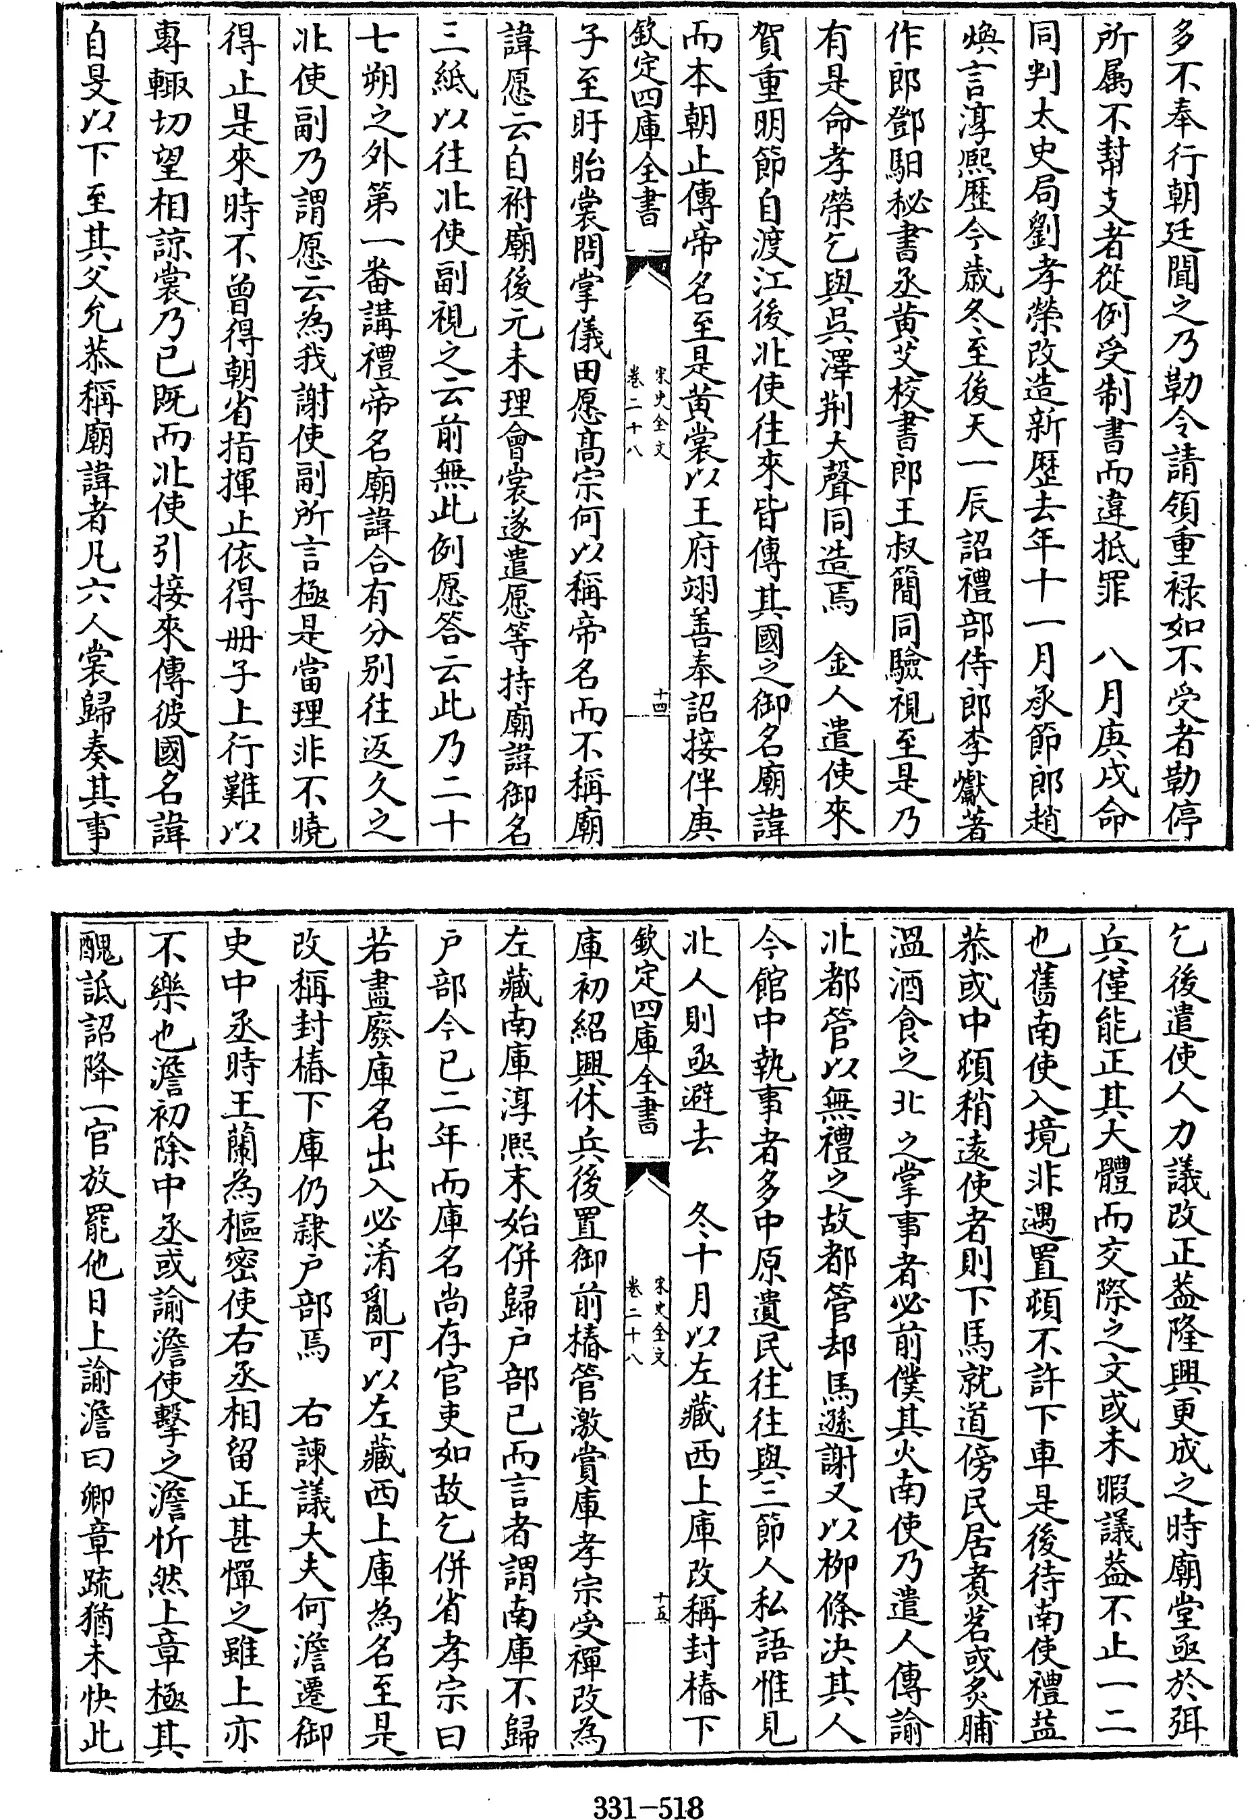 多不奉行朝廷聞之乃勒令請領重禄如不受者勒停
所属不幇支者從例受制書而違抵罪　八月庚戌命
同判太史局劉孝榮改造新歴去年十一月承節郎趙
煥言淳熙歴今歳冬至後天一辰詔禮部侍郎李巘著
作郎鄧馹秘書丞黄艾校書郎王叔簡同驗視至是乃
有是命孝榮乞與吳澤荆大聲同造焉　金人遣使來
賀重明節自渡江後北使往來皆傳其國之御名廟諱
而本朝止傳帝名至是黄裳以王府翊善奉詔接伴庚
欽定四庫全書
宋史全文
卷二十八
十四
子至盱眙裳問掌儀田愿髙宗何以稱帝名而不稱廟
諱愿云自祔廟後元未理會裳遂遣愿等持廟諱御名
三紙以往北使副視之云前無此例愿答云此乃二十
七朔之外第一番講禮帝名廟諱合有分别往返久之
北使副乃謂愿云為我謝使副所言極是當理非不曉
得止是來時不曾得朝省指揮止依得册子上行難以
專輙切望相諒裳乃已既而北使引接來傳彼國名諱
自旻以下至其父允恭稱廟諱者凡六人裳歸奏其事
乞後遣使人力議改正葢隆興更成之時廟堂亟於弭
兵僅能正其大體而交際之文或未暇議葢不止一二
也舊南使入境非遇置頓不許下車是後待南使禮益
恭或中頓稍逺使者則下馬就道傍民居煑茗或炙脯
溫酒食之北之掌事者必前僕其火南使乃遣人傳諭
北都管以無禮之故都管却馬遜謝又以柳條决其人
今館中執事者多中原遺民往往與三節人私語惟見
北人則亟避去　冬十月以左藏西上庫改稱封樁下
欽定四庫全書
宋史全文
卷二十八
十五
庫初紹興休兵後置御前樁管激賞庫孝宗受禪改為
左藏南庫淳熙末始併歸户部已而言者謂南庫不歸
户部今已二年而庫名尚存官吏如故乞併省孝宗曰
若盡廢庫名出入必淆亂可以左藏西上庫為名至是
改稱封樁下庫仍隷户部焉　右諫議大夫何澹遷御
史中丞時王藺為樞密使右丞相留正甚憚之雖上亦
不樂也澹初除中丞或諭澹使擊之澹忻然上章極其
醜詆詔降一官放罷他日上諭澹曰卿章疏猶未快此
331-518